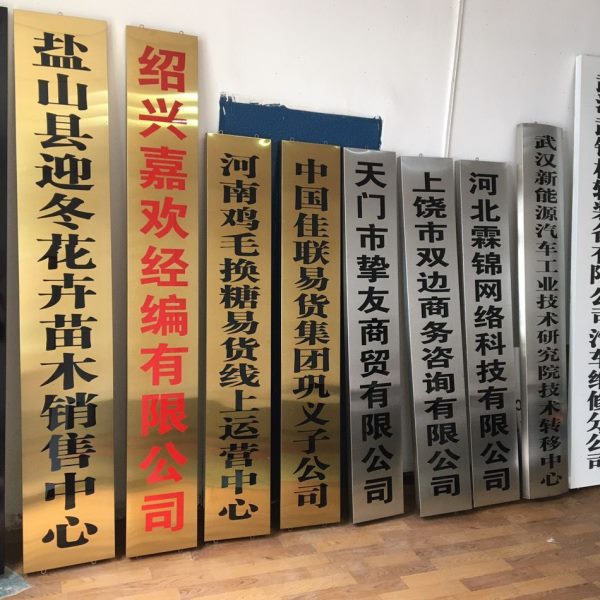 盐山县迎冬花卉苗木销售中心
绍兴嘉欢经编有限公司
河南鸡毛换糖易货线上运营中心
中国佳联易货集团巩义子公司
天门市挚友商贸有限公司
上饶市双边商务咨询有限公司
河北霖锦网络科技有限公司
武汉新能源汽车工业技术研究院技术转移中心
有限公司汽车维修分公司